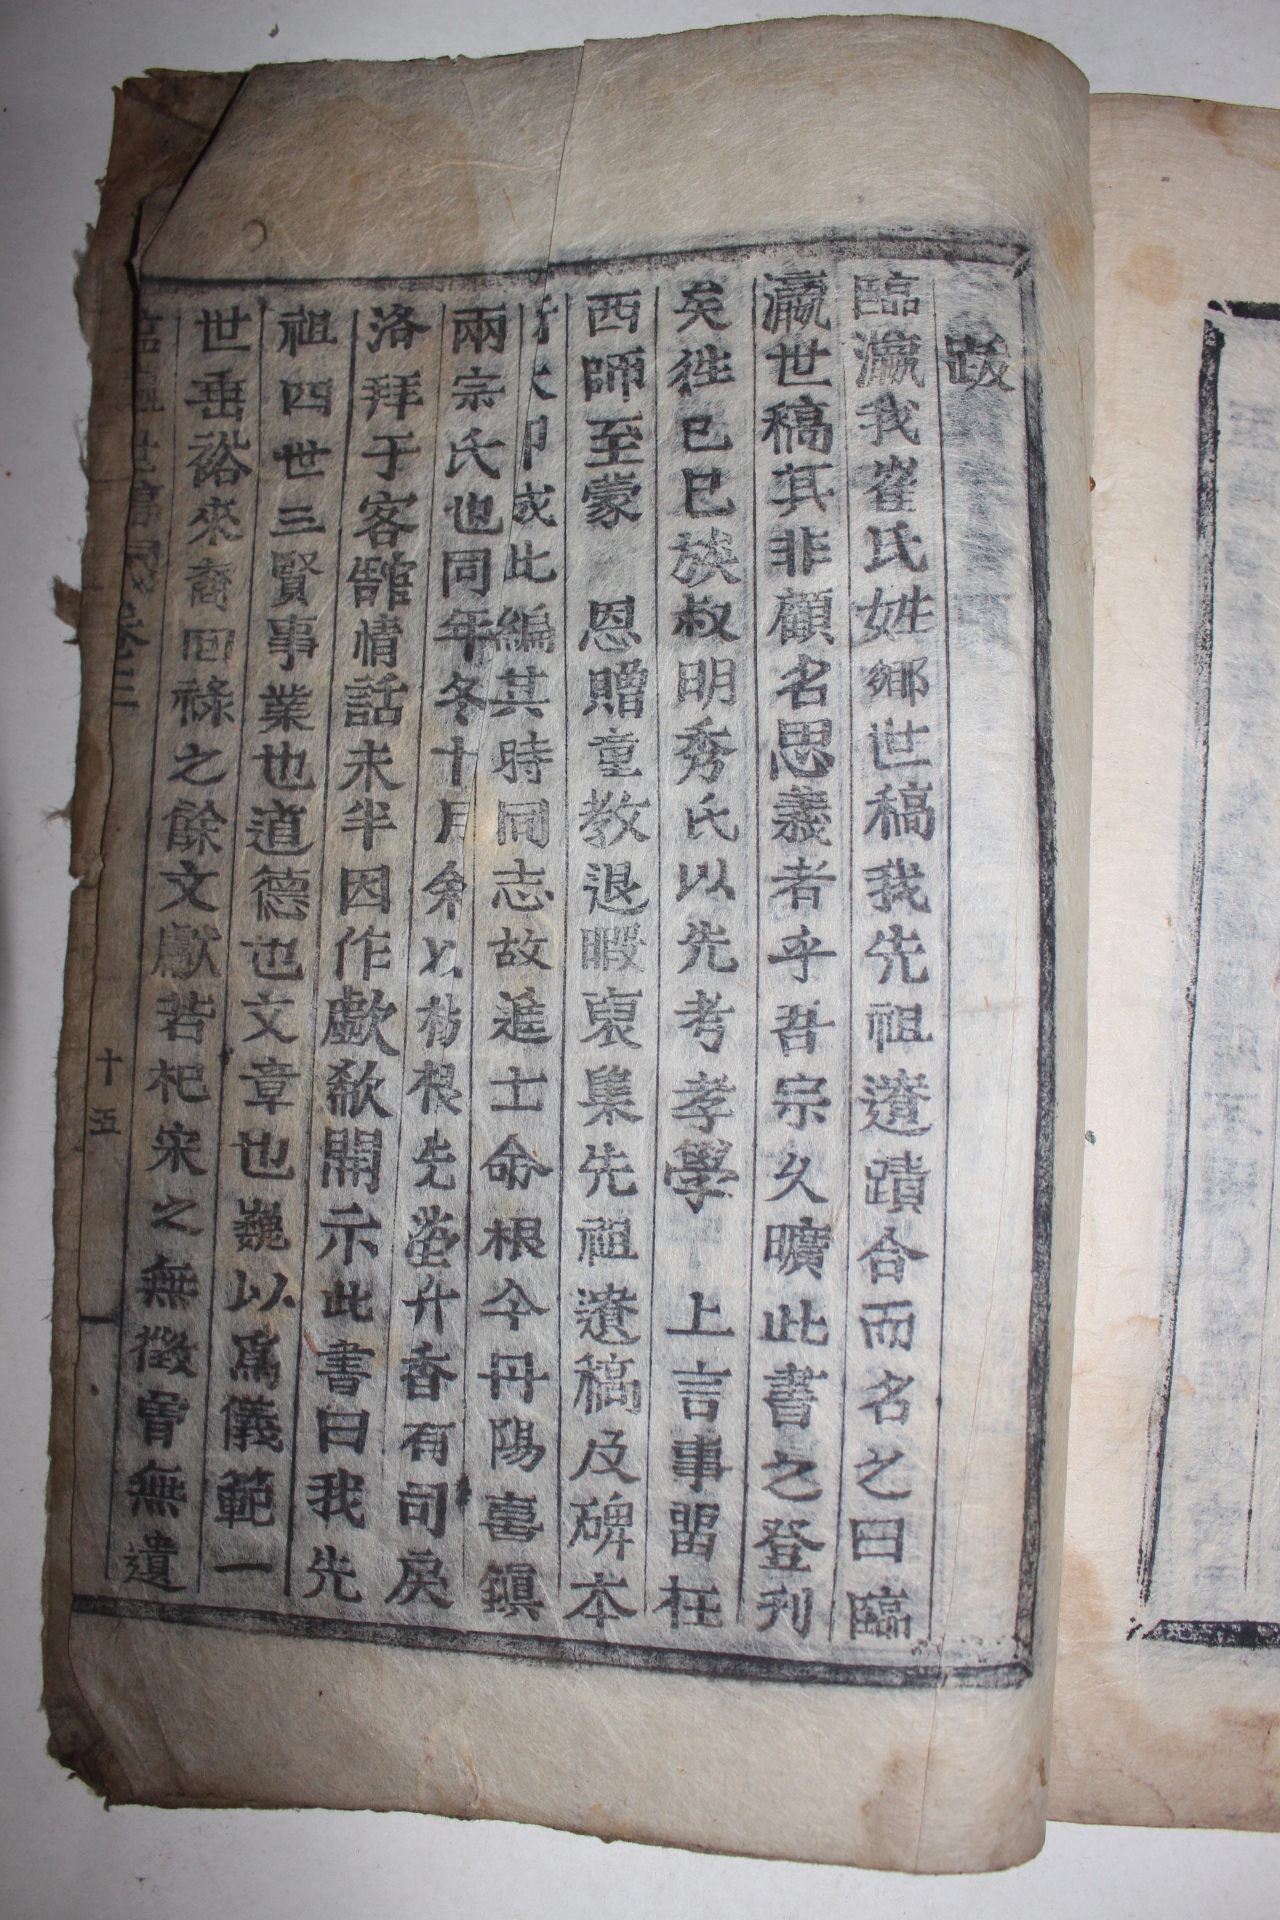 跋
臨瀛我崔氏姓鄕世稿我先祖遺蹟合而名之曰臨
瀛世稿其非顧名思義者乎吾宗久曠此書之登刋
矣徃己巳族叔明秀氏以先考孝學 上言事留在
西師至蒙 恩贈童教退暇裒集先祖遺稿及碑本
成此編其時同志故進士命根今丹陽喜鎭
兩宗氏也同年冬十月余以 根先塋升香有司戾
洛拜于客館情話未半因作歔欷開示此書曰我先
祖四世三賢事業也道德也文章也巍以爲儀範一
世垂裕來裔回祿之餘文獻若杞宋之無徵會無遺
臨瀛世稿 卷三
十五